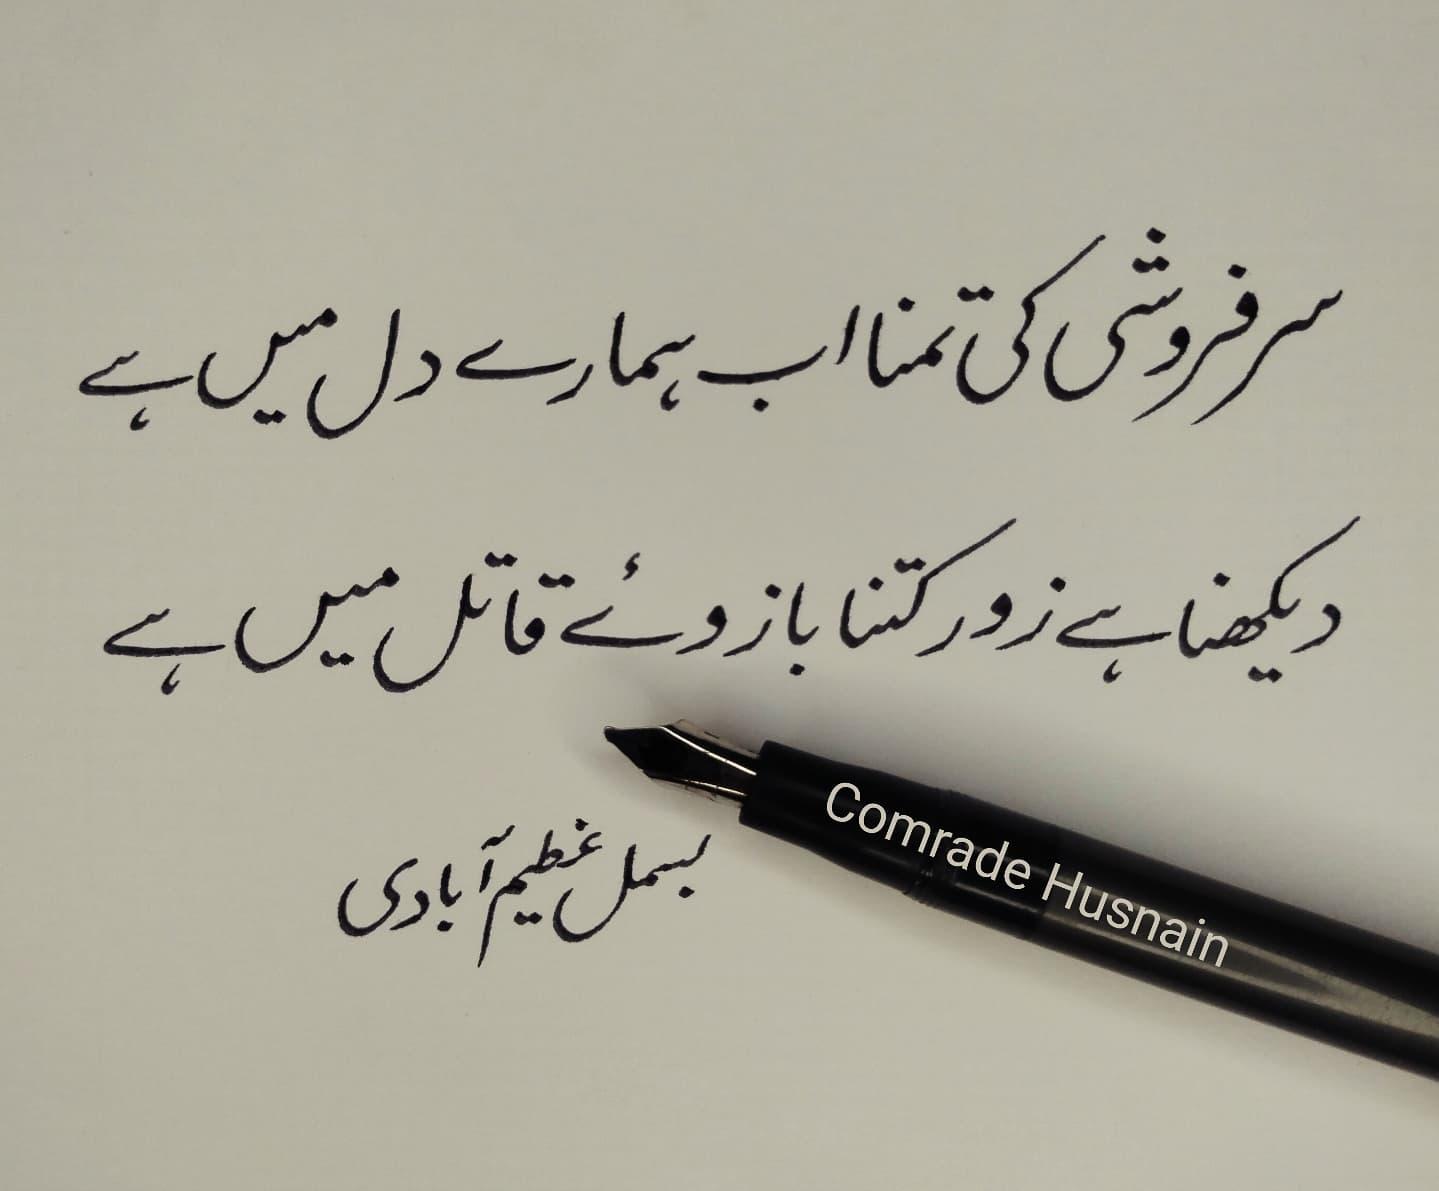 سرفروشی کی تمنا اب ہمارے دل میں ہے
دیکھنا ہے زور کتنا بازوئے قاتل میں ہے
بسمل عظیم آبادی
Comrade Husnain